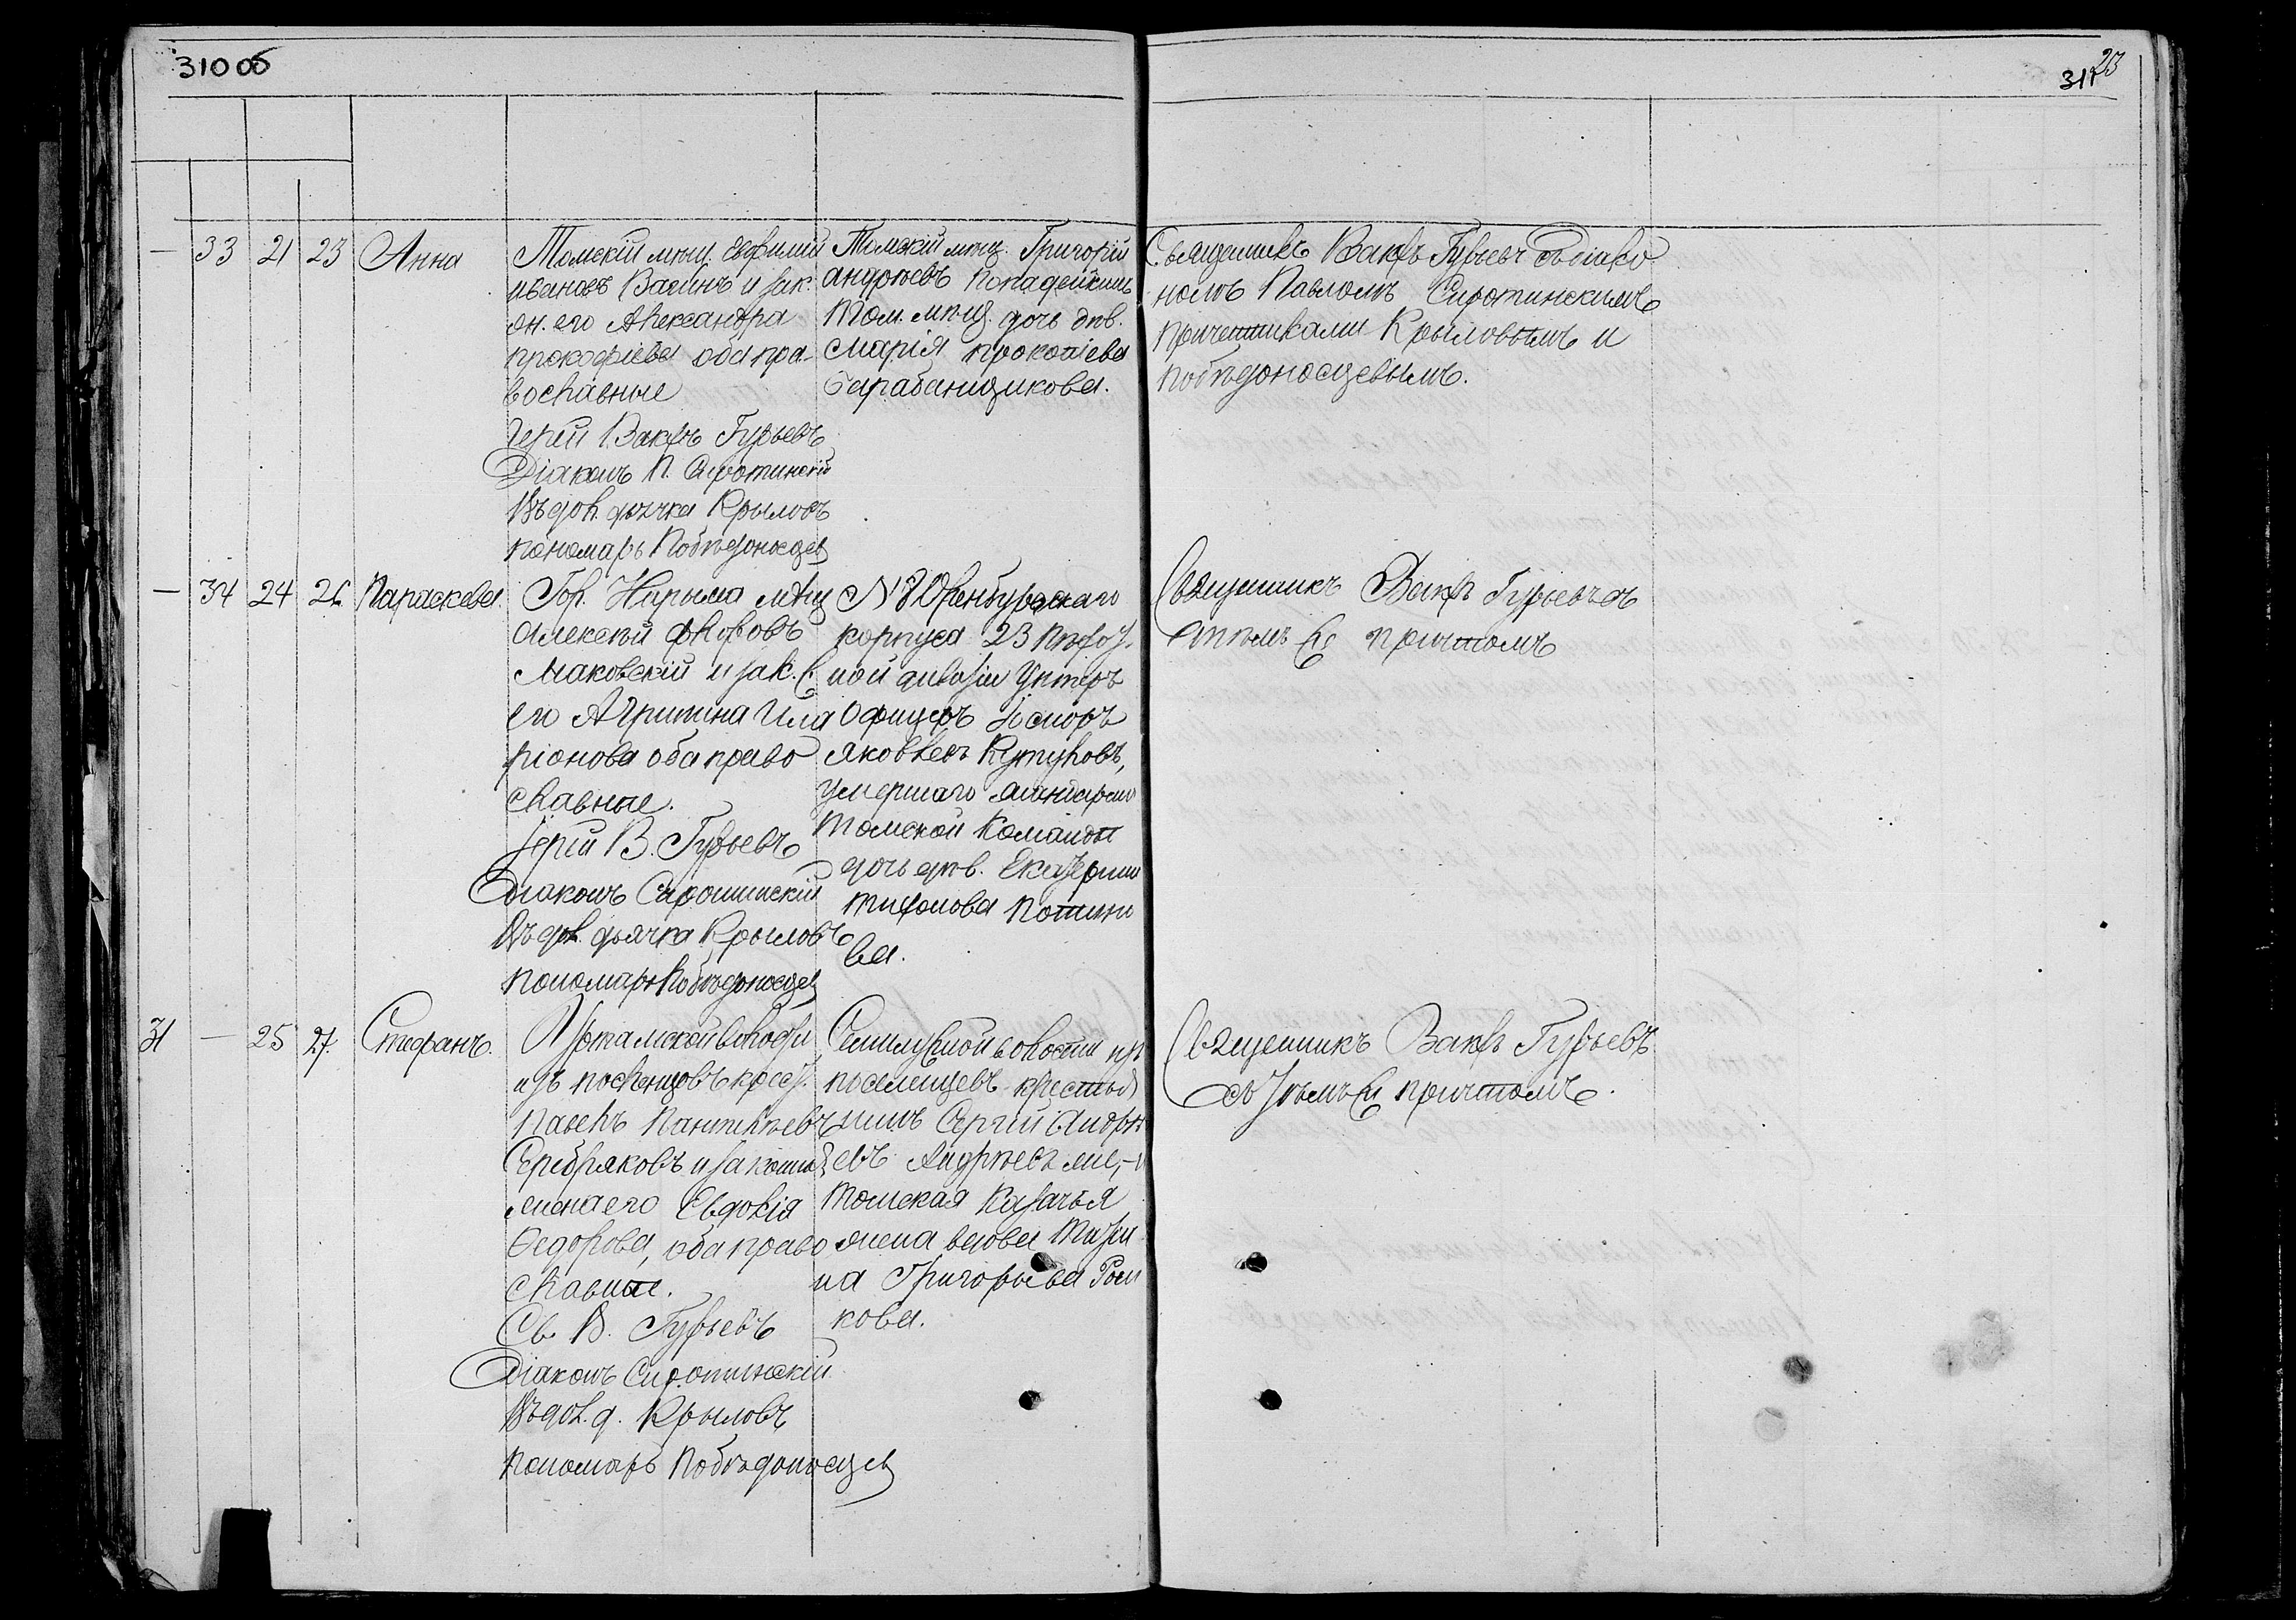 310 об
23
311
— 33 21 23 Анна
Томскій мѣщ. Евфимій
Ивановъ Вагинъ и зак.
жн. его Александра
Прокофіева оба пра-
вославные
Іерей Вакхъ Гурьевъ
Діаконъ П. Сиротинскій
Въ дол. дьячка Крыловъ
Пономарь Побѣдоносцев
Томскій мѣщ. Григорій
Андреевъ Попадейкинъ
Том. мѣщ. дочь дѣв.
Марія Прокопіева
Барабанщикова.
Священникъ Вакхъ Гурьевъ съ діако
номъ Павломъ Сиротинскимъ
причетниками Крыловымъ и
Побѣдоносцевымъ.
— 34 24 26 Параскева.
Гор. Нарыма мѣщ
Алексѣй Флоровъ
Маковскій и зак. ж
его Агрипина Ила
ріонова оба право
славные.
Іерей В. Гурьевъ
Діаконъ Сиротинскій
Въ дол. дьячка Крыловъ
Пономарь Побѣдоносцев
№ 8 Оренбургскаго
корпуса 23 пѣхот.
ной дивизіи Унтеръ
Офицеръ
Яковлевъ Кутузовъ,
умершаго жандарма
Томской Команды
дочь дѣв. Екатерина
Тихонова
ва.
Священникъ Вакхъ Гурьевъ съ
тѣмъ же причтомъ
31 — 25 27. Стефанъ.
Уртамской волости
изъ поселенцовъ крест.
Павелъ Пантелѣевъ
Серебряковъ и законная
жена его Евдокія
Ѳедорова, оба право
славные.
Св. В. Гурьевъ
Діаконъ Сиротинскій
Въ дол. д. Крыловъ
Пономарь Побѣдоносцев
Семилужной волости изъ
поселенцевъ крестья
нинъ Сергій Андре
евъ
Томская Казачья
жена вдова
на Григорьева
кова.
Священникъ Вакхъ Гурьевъ
съ тѣмъ же причтомъ.